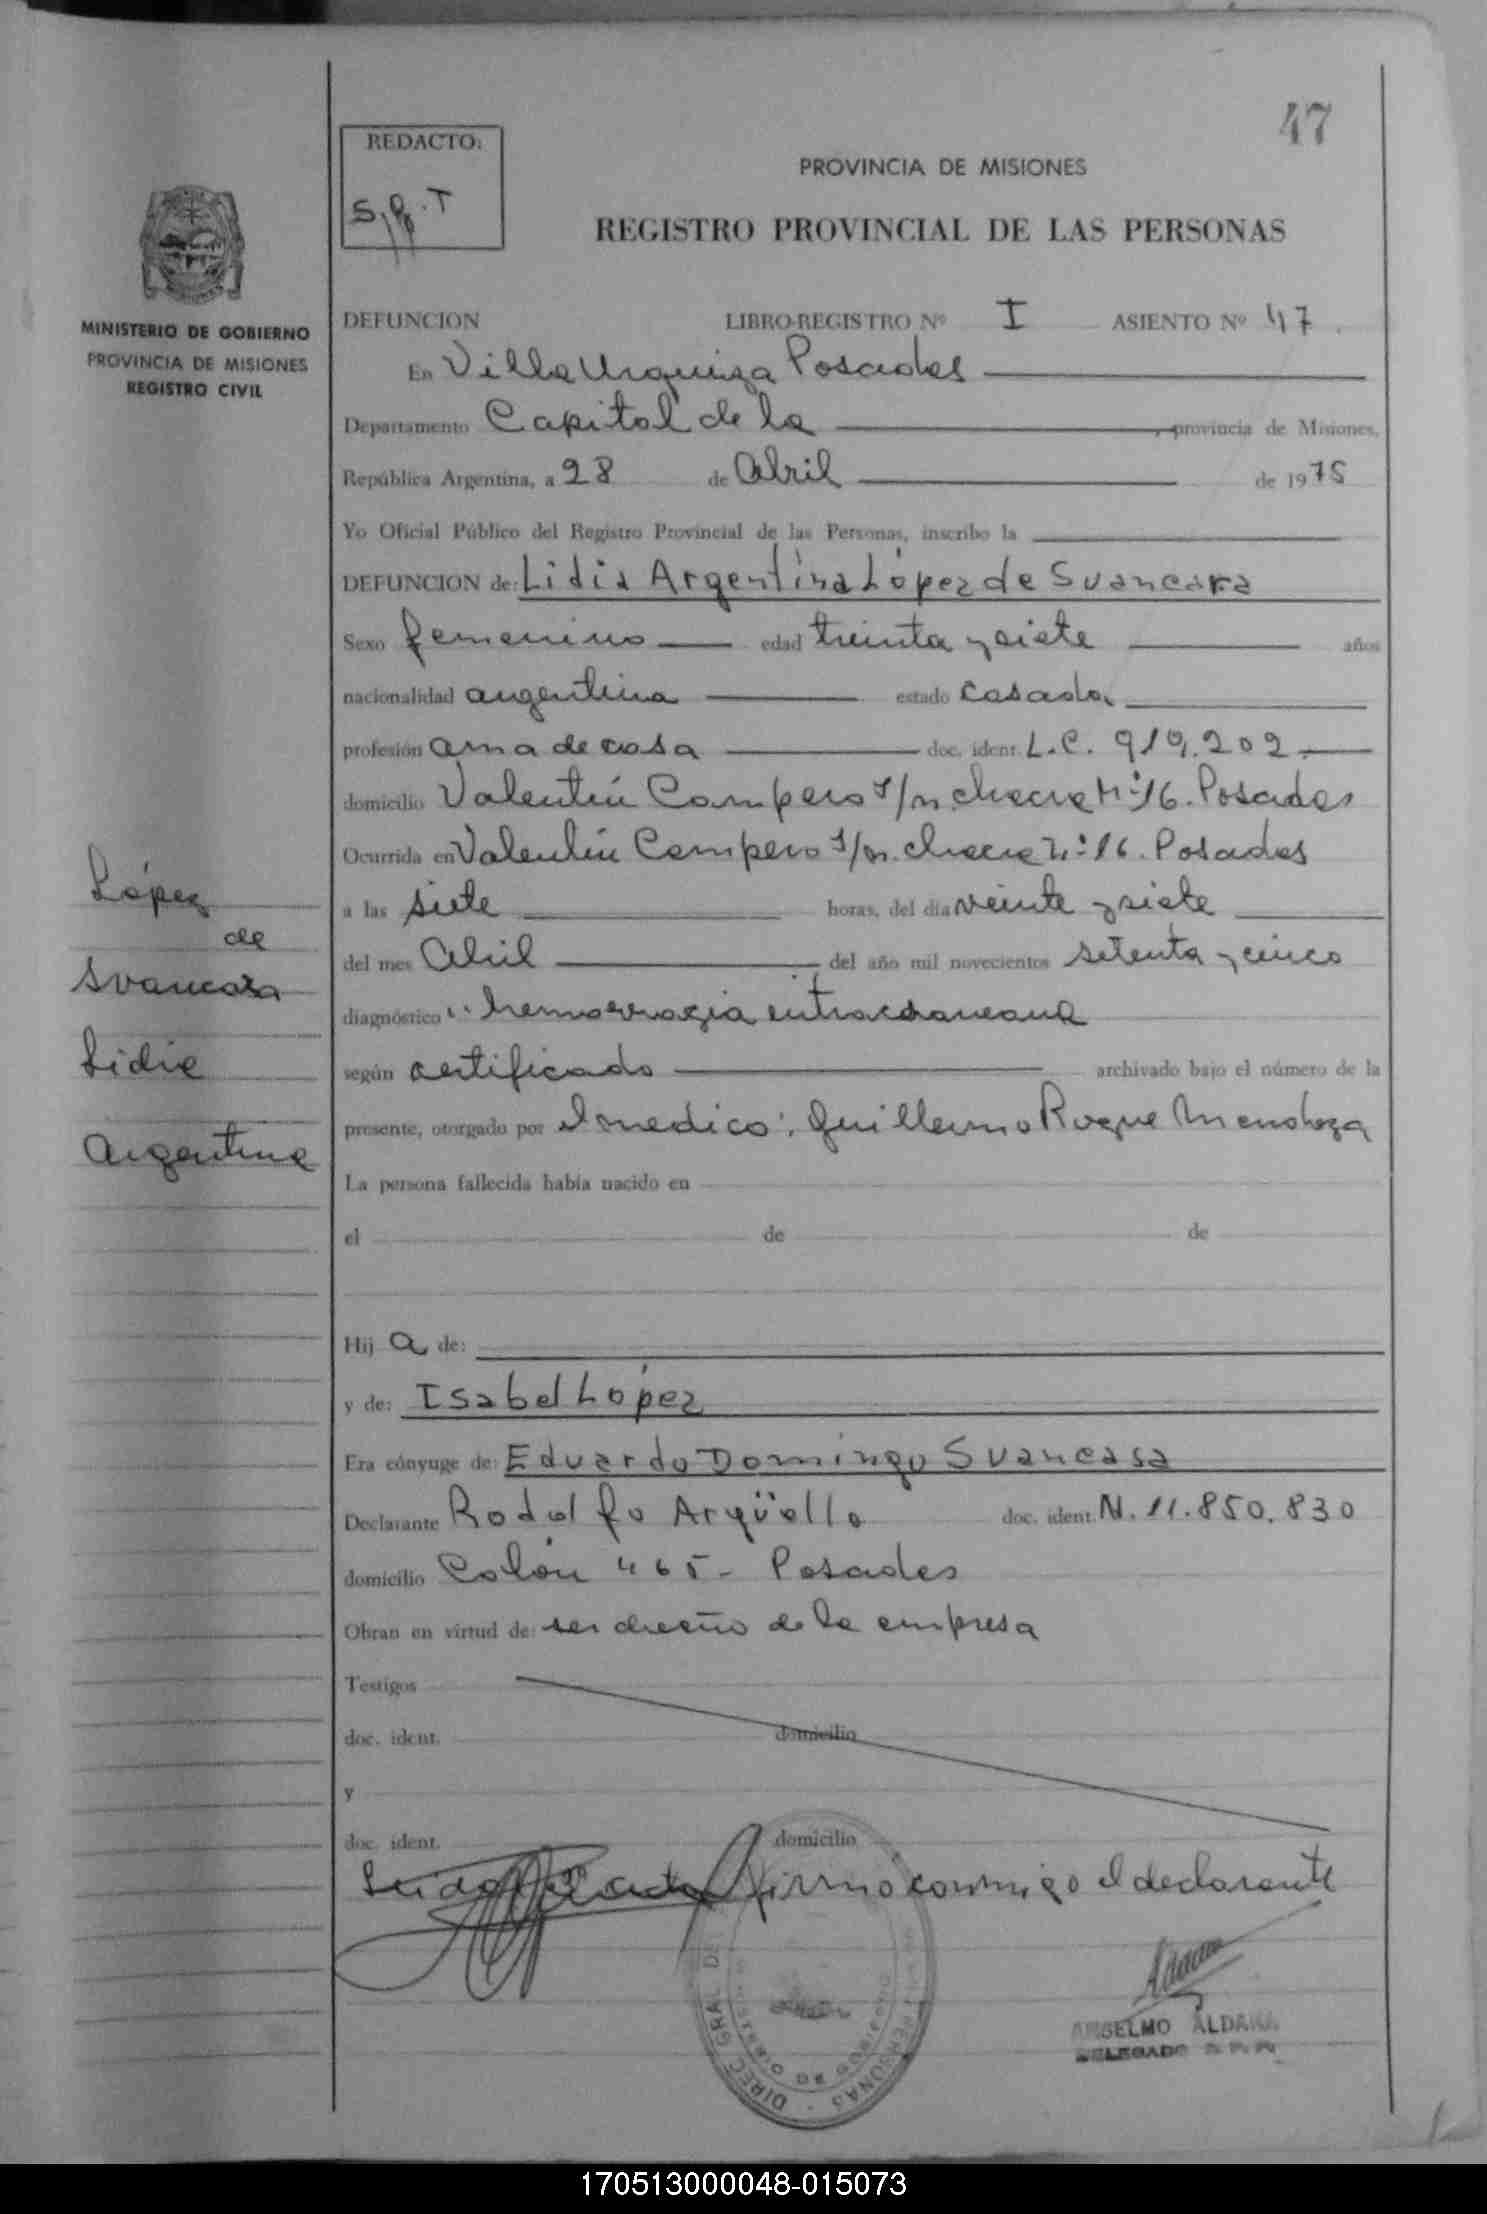 47
REDACTO:
S.R.T
PROVINCIA DE MISIONES
REGISTRO PROVINCIAL DE LAS PERSONAS
MINISTERIO DE GOBIERNO
PROVINCIA DE MISIONES
REGISTRO CIVIL
DEFUNCION LIBRO-REGISTRO Nº I ASIENTO Nº 47
En Villa Urquiza Posadas
Departamento Capital de la , provincia de Misiones,
República Argentina, a 28 de Abril de 1975
Yo Oficial Público del Registro Provincial de las Personas, inscribo la
DEFUNCION de: Lidia Argentina López de Svancara
Sexo femenino edad treinta y siete años
nacionalidad argentina estado casada
profesión ama de casa doc. ident. L.C. 919.202.
domicilio Valentín Campero s/n. chacra Nº 16. Posadas
Ocurrida en Valentín Campero s/n. chacra Nº 16. Posadas
a las siete horas, del día veinte y siete
del mes Abril del año mil novecientos setenta y cinco
diagnóstico hemorragia intracraneana
según certificado archivado bajo el número de la
presente, otorgado por el medico: Guillermo Roque Mendoza
La persona fallecida había nacido en
el de de
Hij a de:
y de: Isabel López
Era cónyuge de: Eduardo Domingo Svancasa
Declarante Rodolfo Argüello doc. ident. N. 11.850.830
domicilio Colón 465 - Posadas
Obran en virtud de: ser dueño de la empresa
Testigos
doc. ident. domicilio
y
doc. ident. domicilio
Leida el acta firmó conmigo el declarante
López
de
Svancara
Lidia
Argentina
DIREC. GRAL. DE PERSONAS
ANSELMO ALDANA
DELEGADO R.P.P.
170513000048-015073